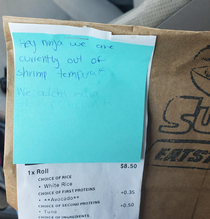 Hey ninja we are
currently out of
shrimp tempura
We added
SU
EATS
1x Roll $8.50
CHOICE OF RICE
• White Rice
CHOICE OF FIRST PROTEINS
• **Avocado** +0.35
CHOICE OF SECOND PROTEINS +0.50
• Tuna
CHOICE OF INGREDIENTS